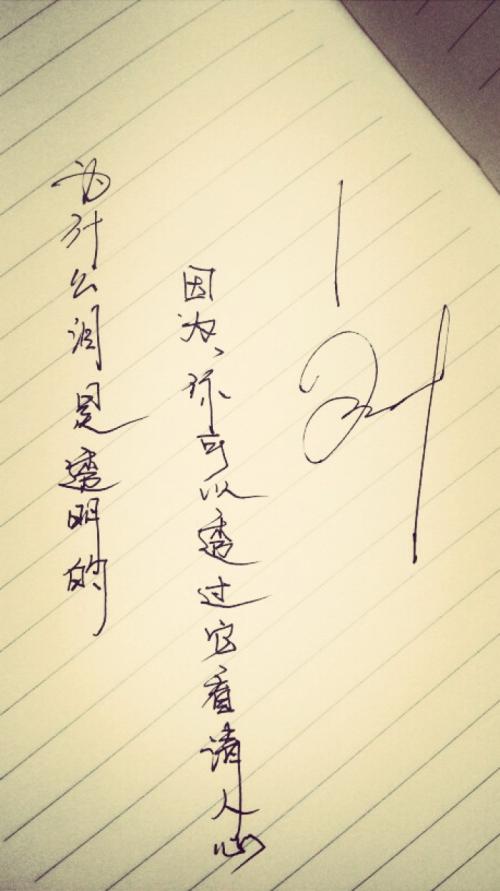 为什么泪是透明的
因为，你可以透过它看请人心